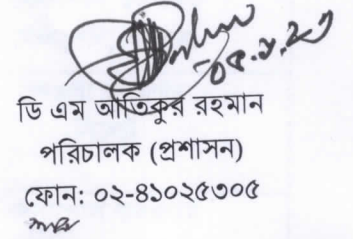 ডি এম আতিকুর রহমান
পরিচালক (প্রশাসন)
ফোন: ০২-৪১০২৫৩০৫